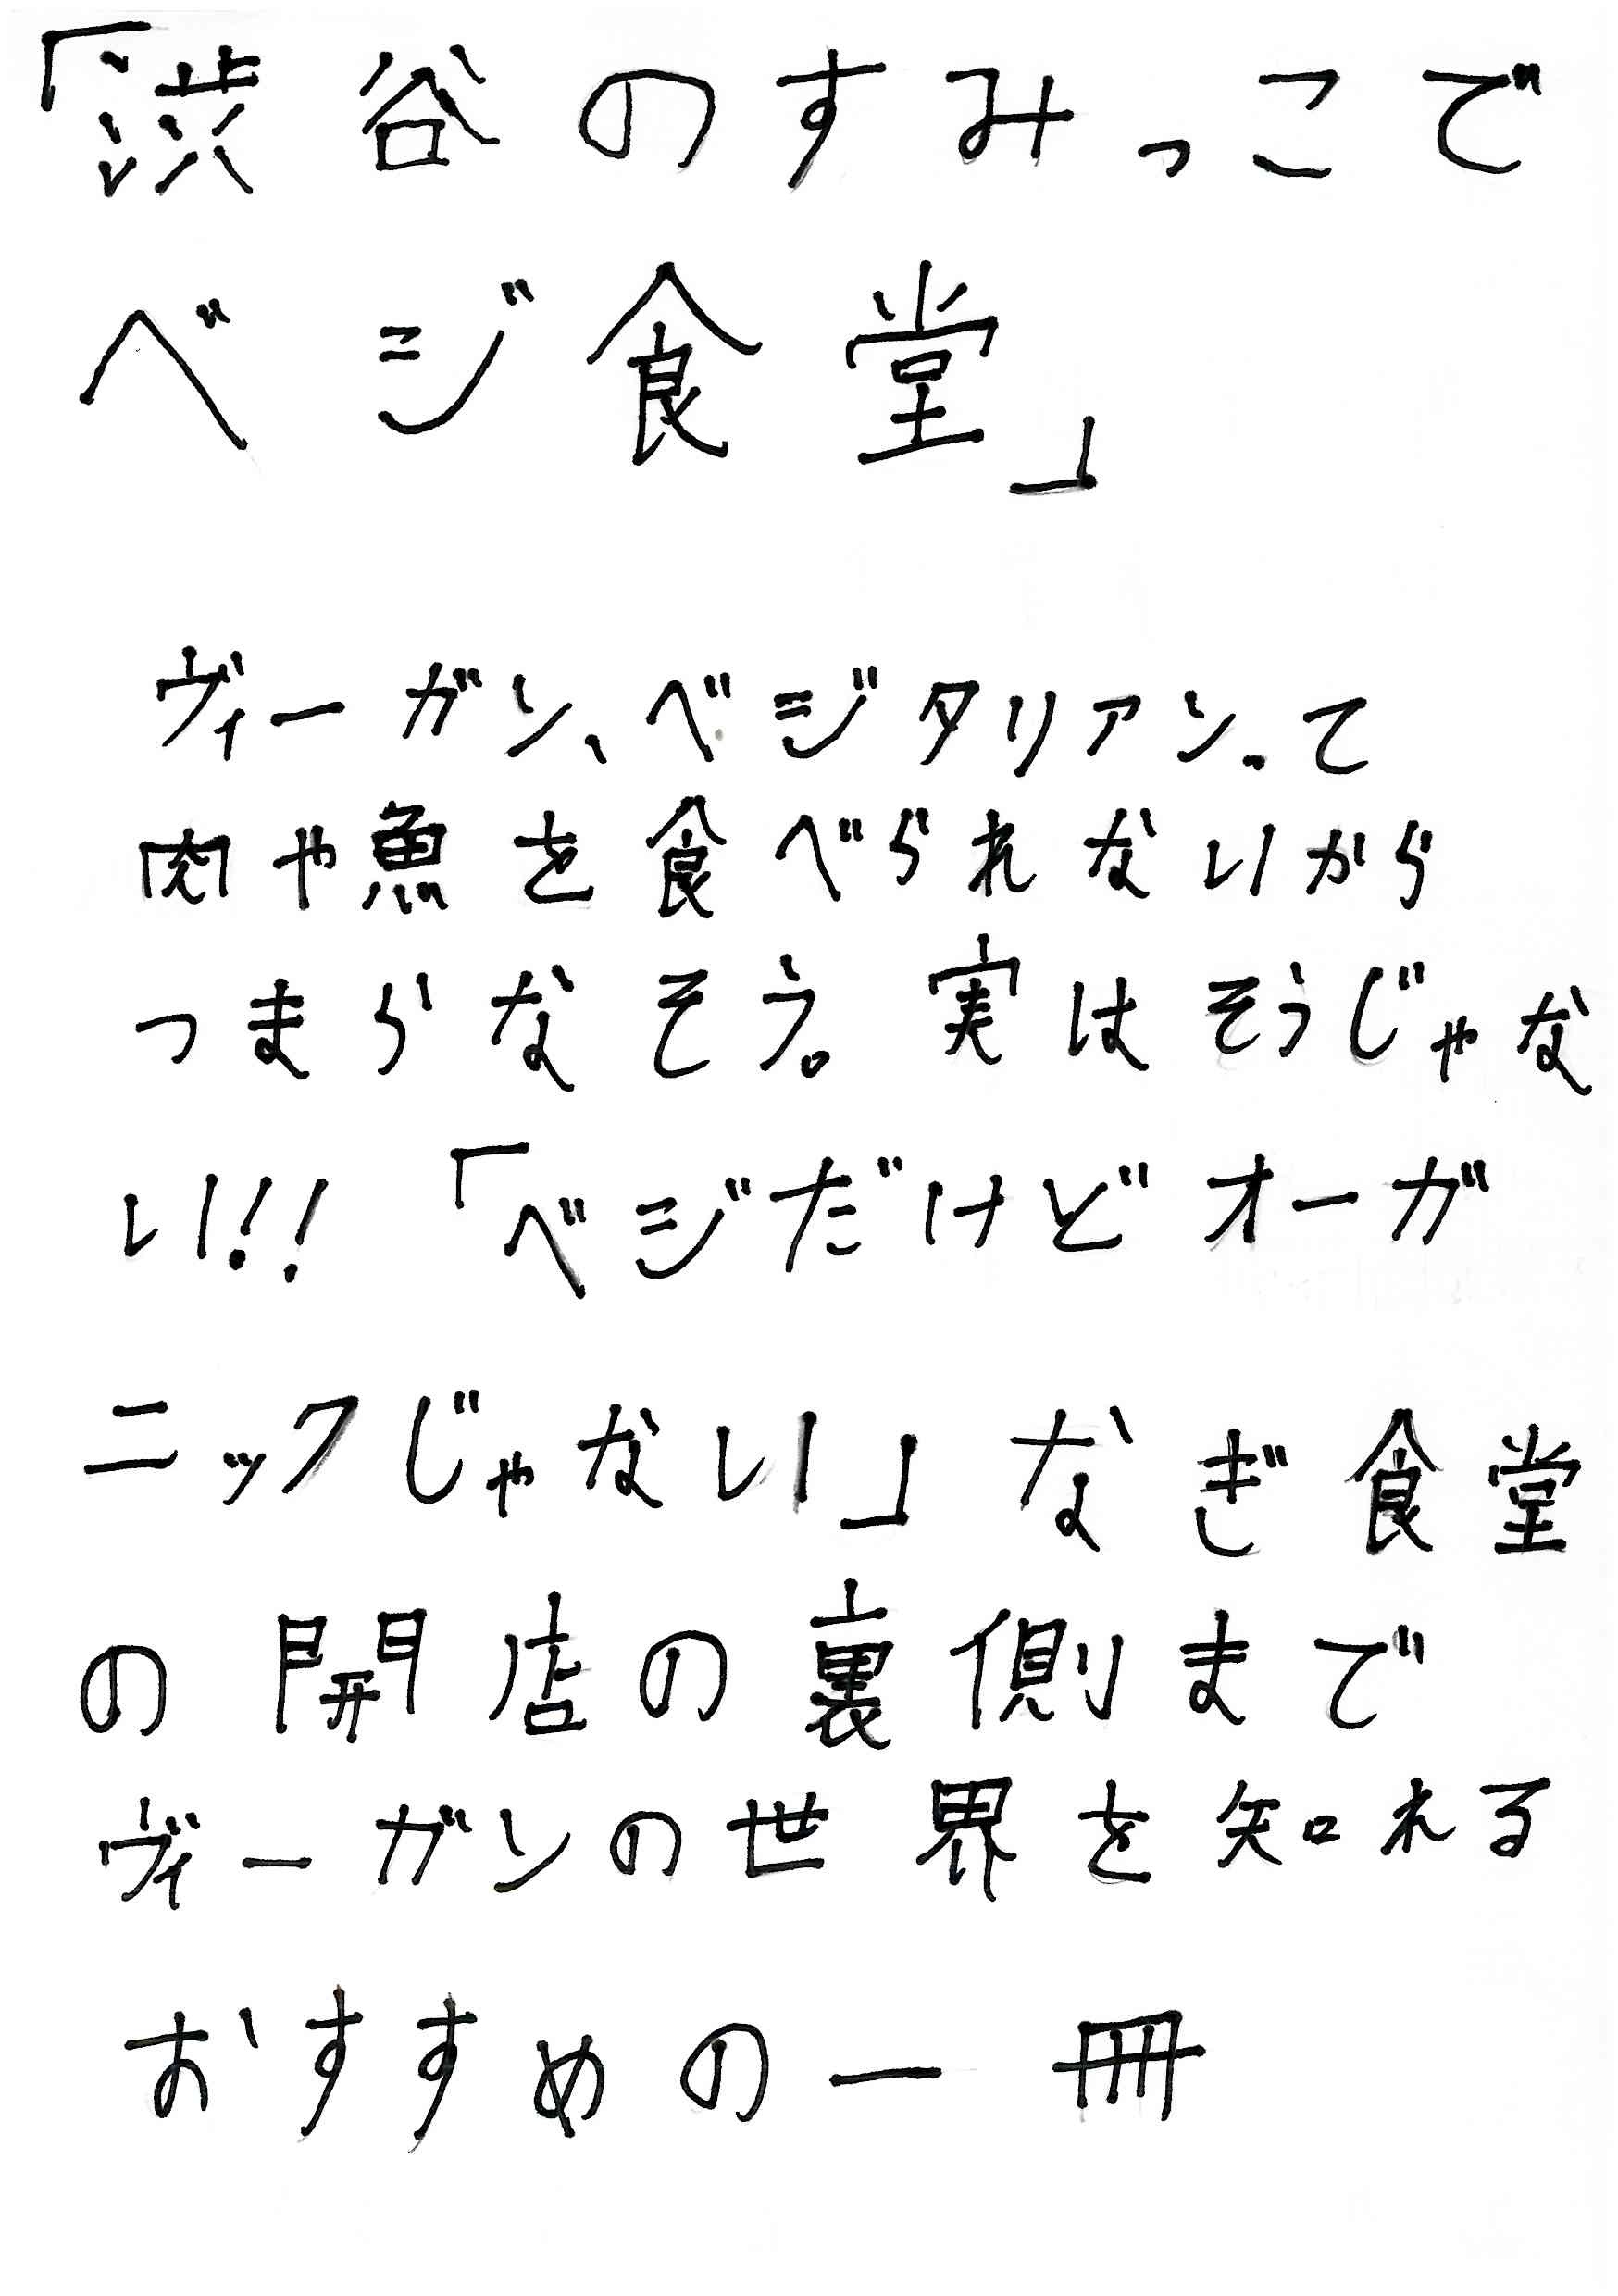 「渋谷のすみっこで
ベジ食堂」
ヴィーガン、ベジタリアンって
肉や魚を食べられないから
つまらなそう。実はそうじゃな
い!!「ベジだけどオーガ
ニックじゃない」なぎ食堂
の開店の裏側まで
ヴィーガンの世界を知れる
おすすめの一冊